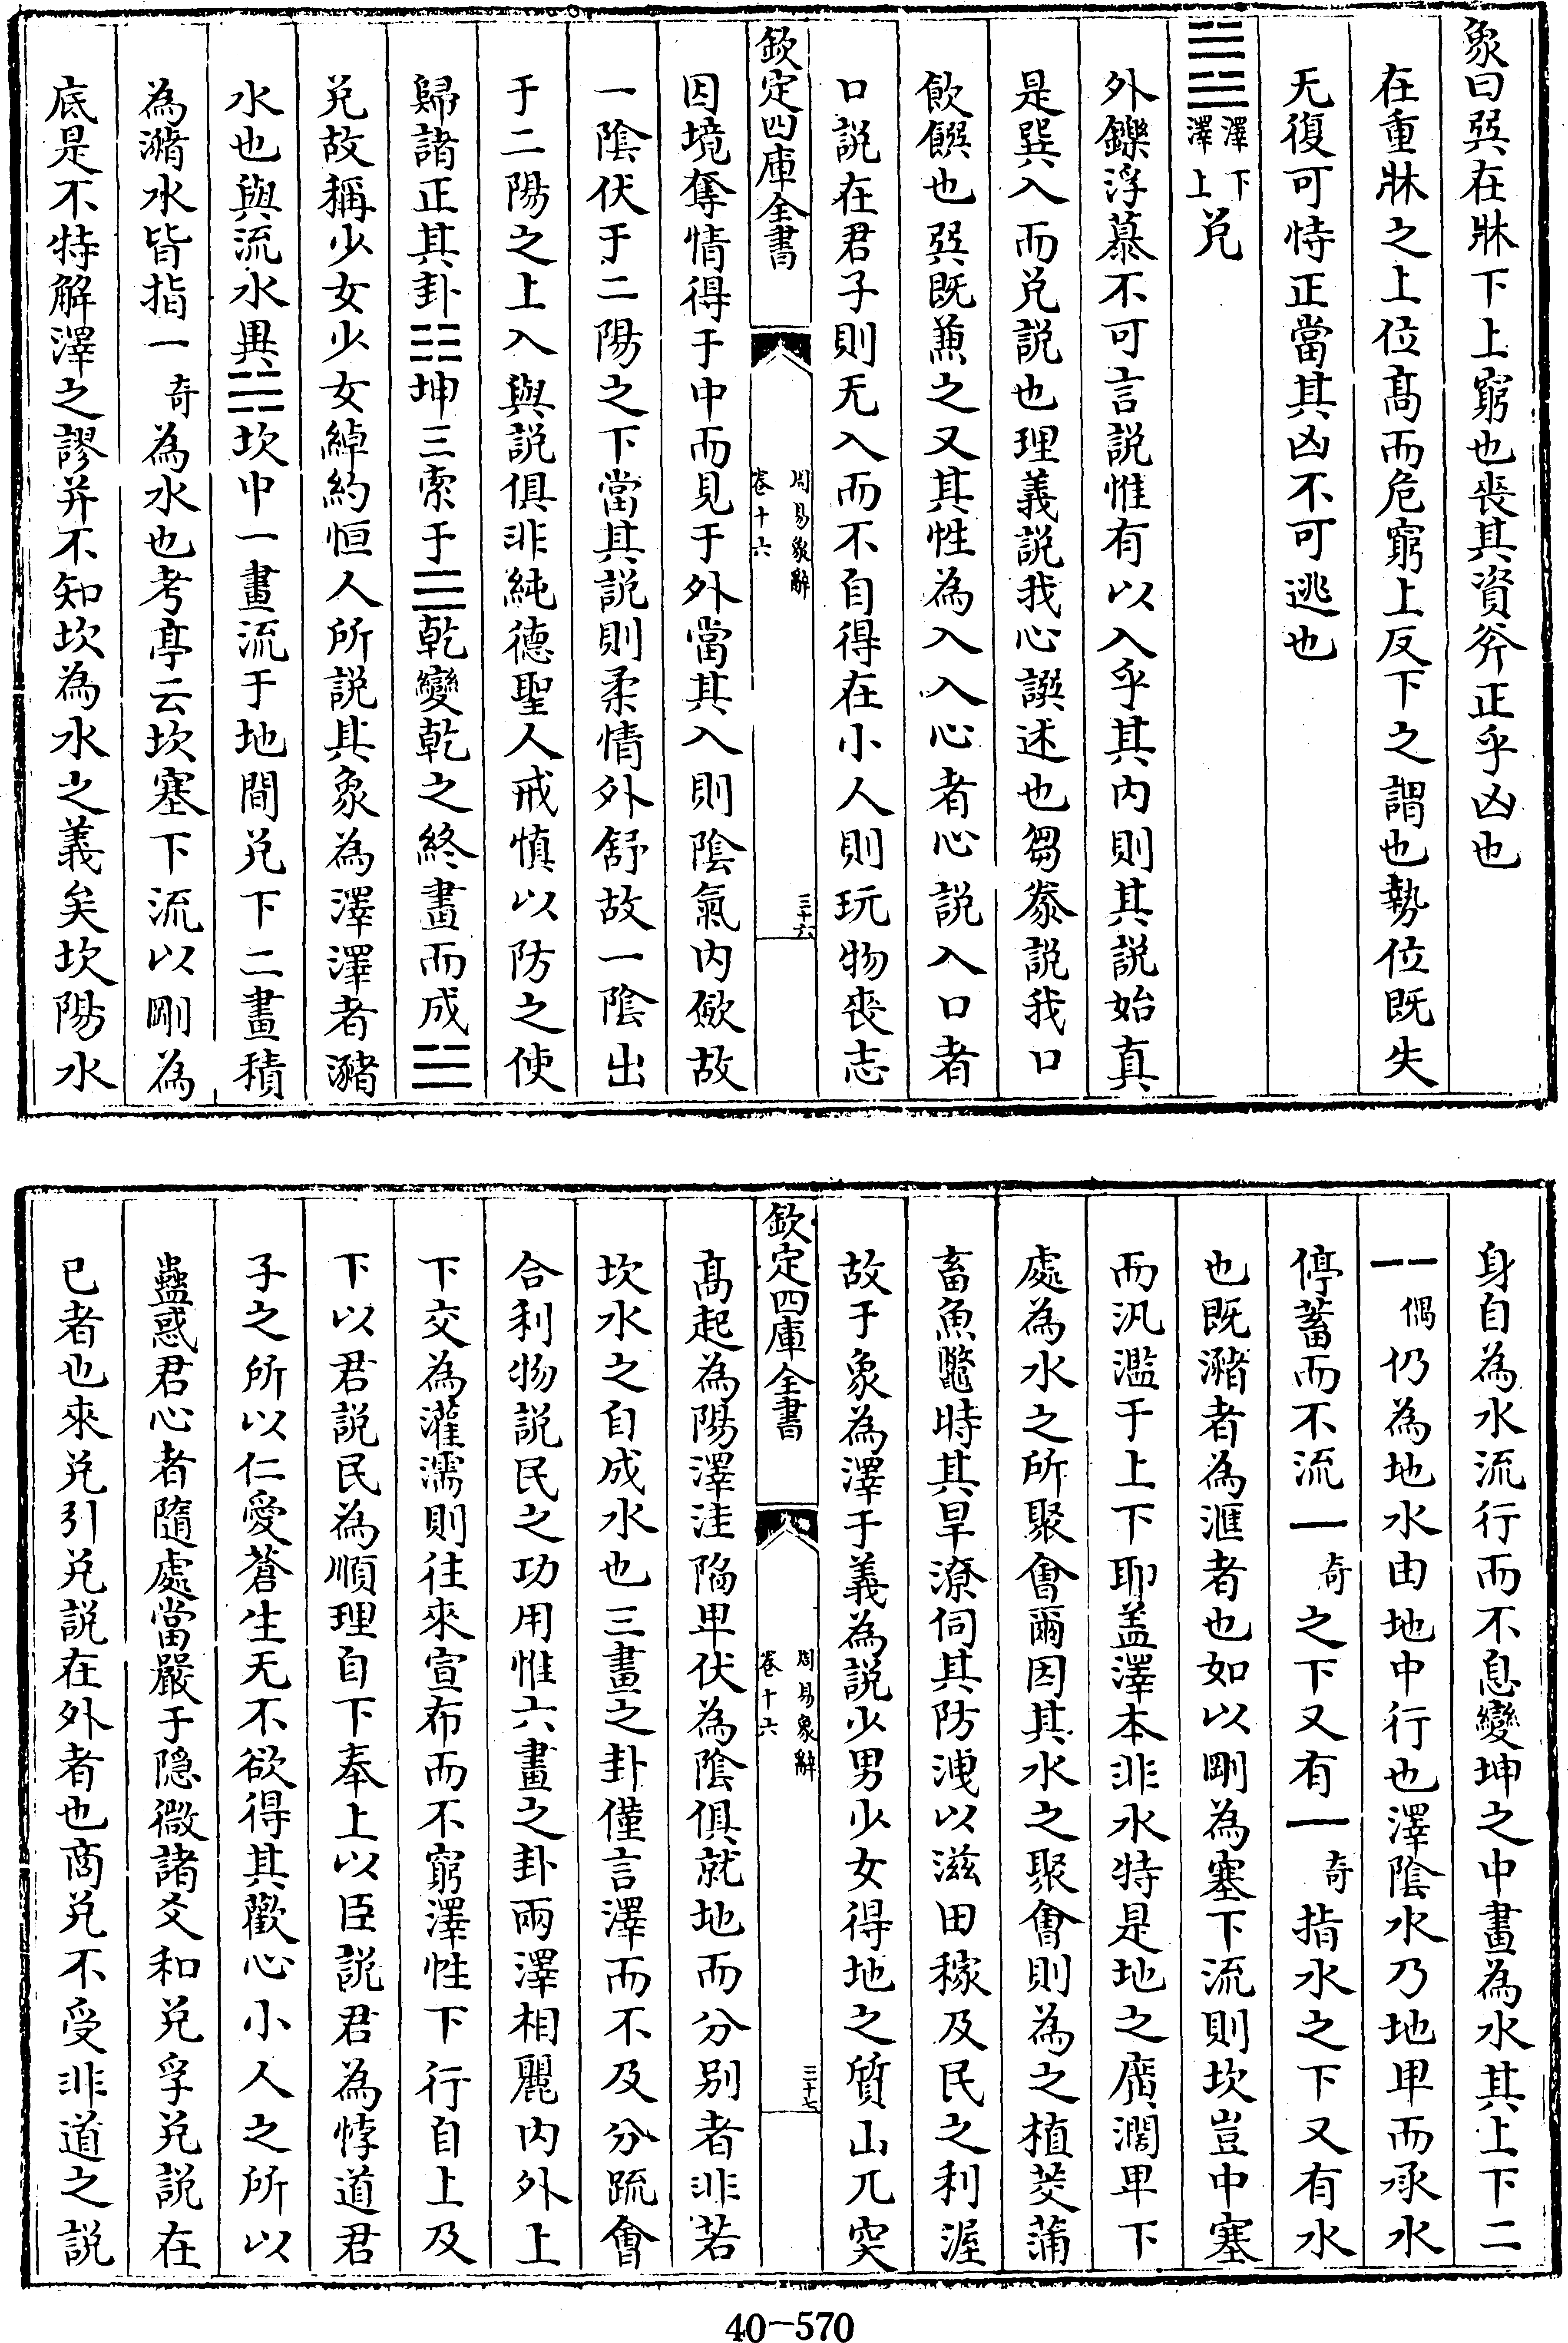 象曰巽在牀下上窮也喪其資斧正乎凶也
在重牀之上位髙而危窮上反下之謂也勢位既失
无復可恃正當其凶不可逃也
䷹澤下澤上兑
外鑠浮慕不可言說惟有以入乎其内則其說始真
是巽入而兑說也理義說我心譔述也芻豢說我口
飲饌也巽既兼之又其性為入入心者心說入口者
口說在君子則无入而不自得在小人則玩物喪志
欽定四庫全書
周易象辭
卷十六
三十六
因境奪情得于中而見于外當其入則陰氣内歛故
一陰伏于二陽之下當其說則柔情外舒故一陰出
于二陽之上入與說俱非純德聖人戒慎以防之使
歸諸正其卦☷坤三索于☰乾變乾之終畫而成☱
兑故稱少女少女綽約恒人所說其象為澤澤者瀦
水也與流水異☵坎中一畫流于地間兑下二畫積
為瀦水皆指一奇為水也考亭云坎塞下流以剛為
底是不特解澤之謬并不知坎為水之義矣坎陽水
身自為水流行而不息變坤之中畫為水其上下二
⚋偶仍為地水由地中行也澤陰水乃地卑而承水
停蓄而不流⚊奇之下又有⚊奇指水之下又有水
也既瀦者為滙者也如以剛為塞下流則坎豈中塞
而汎濫于上下耶盖澤本非水特是地之廣濶卑下
處為水之所聚會爾因其水之聚會則為之植茭蒲
畜魚鼈時其旱潦伺其防洩以滋田稼及民之利渥
故于象為澤于義為說少男少女得地之質山兀突
欽定四庫全書
周易象辭
卷十六
三十七
髙起為陽澤洼陷卑伏為陰俱就地而分别者非若
坎水之自成水也三畫之卦僅言澤而不及分疏會
合利物說民之功用惟六畫之卦兩澤相麗内外上
下交為灌濡則往來宣布而不窮澤性下行自上及
下以君說民為順理自下奉上以臣說君為悖道君
子之所以仁愛蒼生无不欲得其歡心小人之所以
蠱惑君心者隨處當嚴于隠微諸爻和兑孚兑說在
已者也來兑引兑說在外者也商兑不受非道之說
40-570